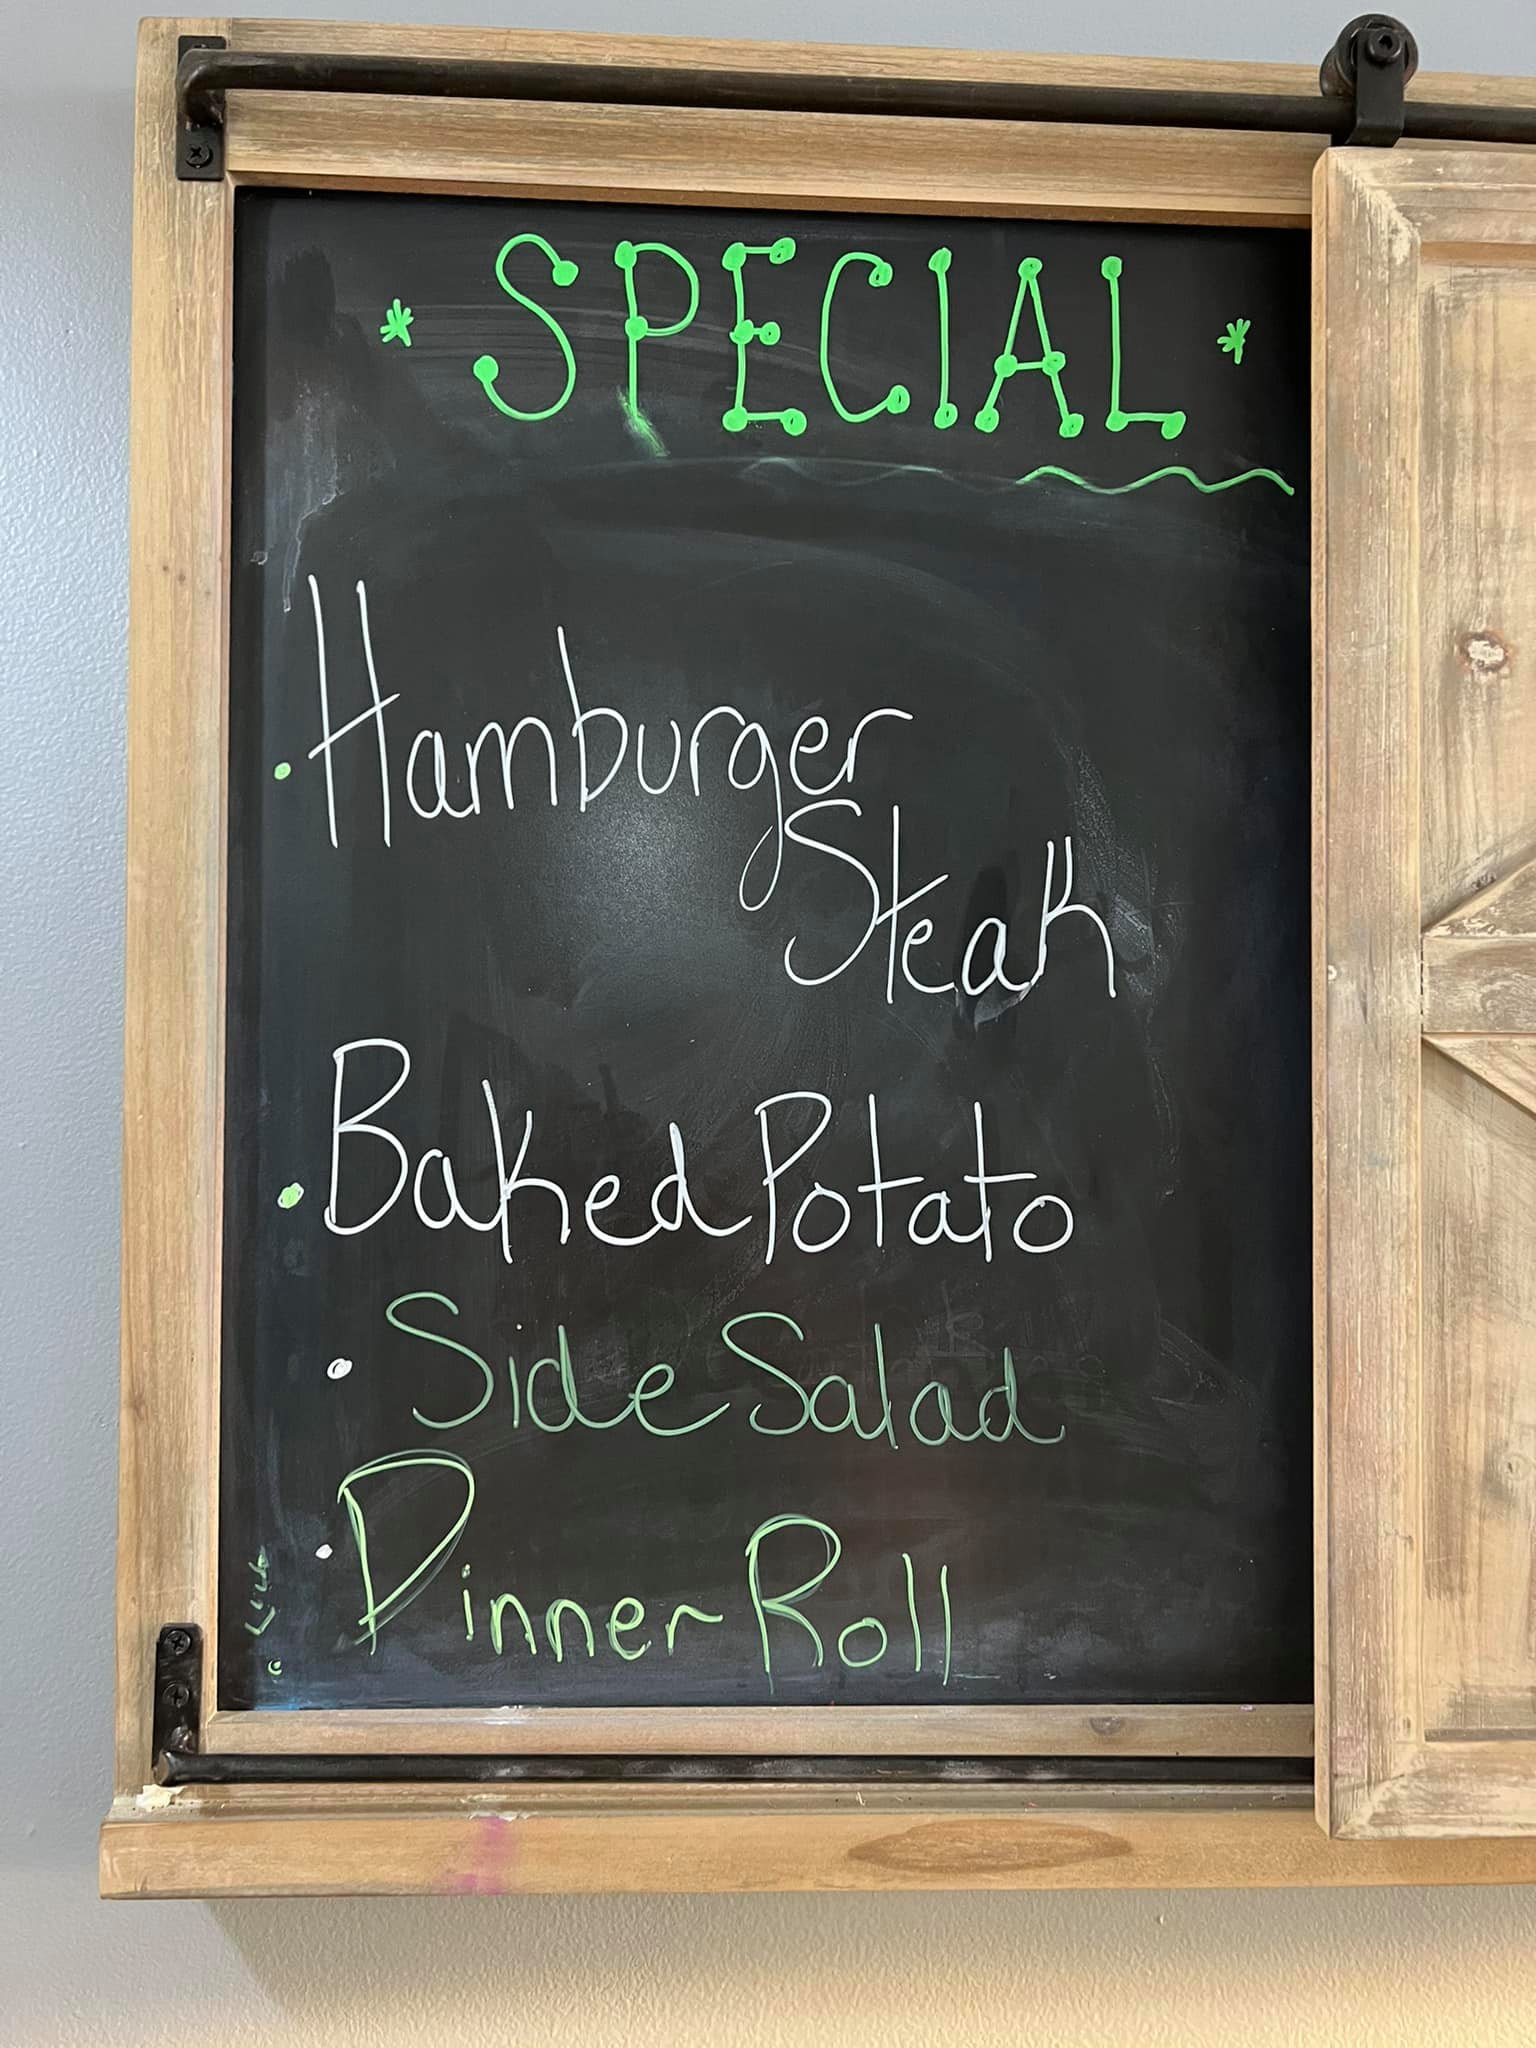 * SPECIAL *
• Hamburger
Steak
• Baked Potato
• Side Salad
• Dinner Roll